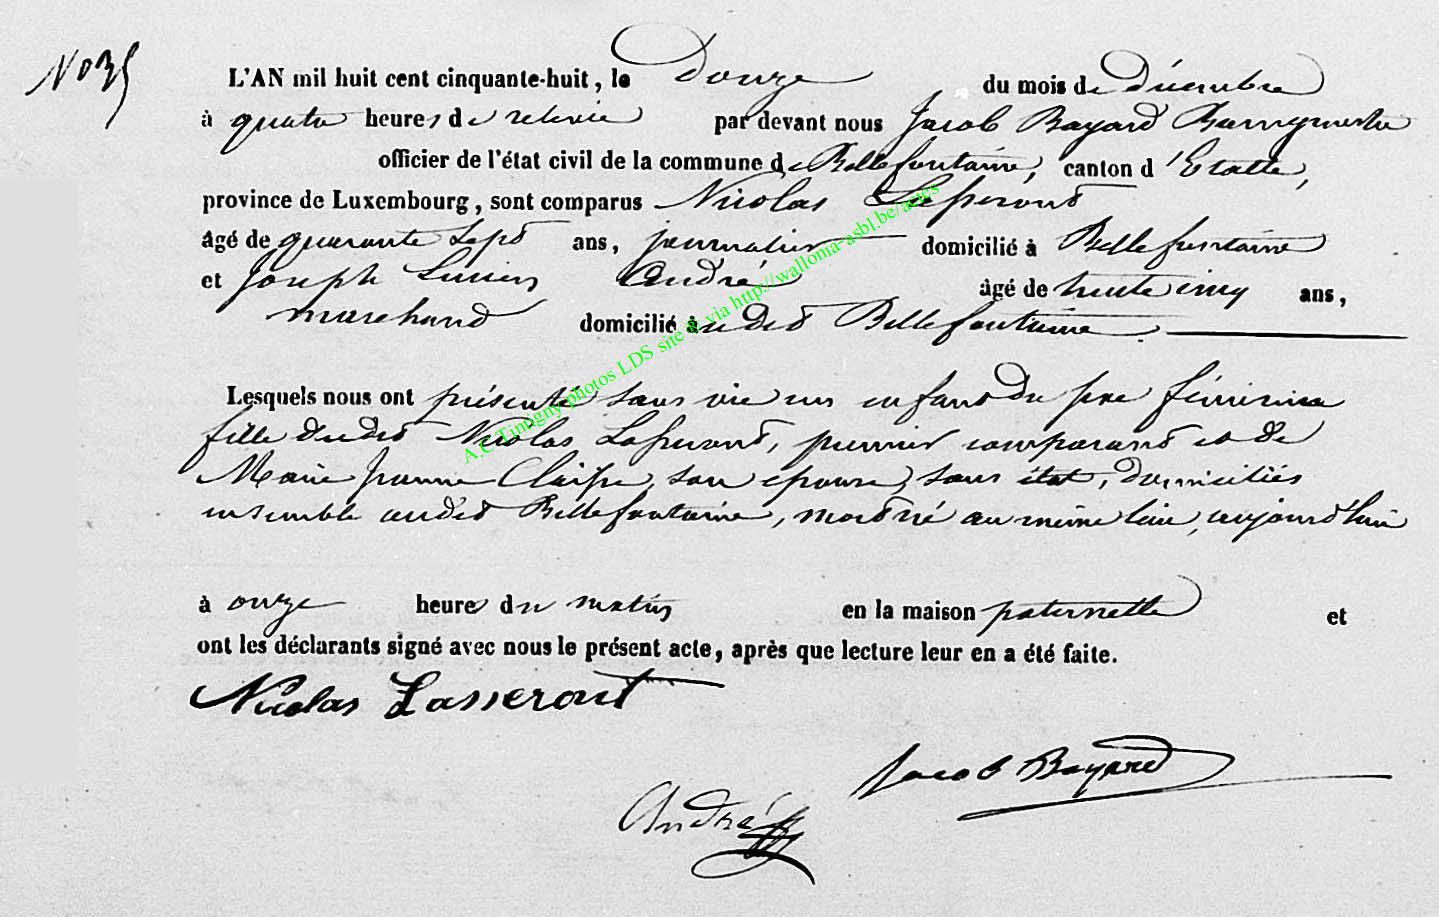 No 35
L'AN mil huit cent cinquante-huit, le Douze du mois de Décembre
à quatre heures de relevée par devant nous Jacob Bayard Bourgmestre
officier de l'état civil de la commune de Bellefontaine, canton d'Etalle,
province de Luxembourg, sont comparus Nicolas Lasseront
âgé de quarante sept ans, journalier domicilié à Bellefontaine
et Joseph Lucien André âgé de trente cinq ans,
marchand domicilié à Bellefontaine
Lesquels nous ont présenté sans vie un enfant du sexe féminin
fille dudit Nicolas Lasseront, premier comparant et de
Marie Jeanne son epouse, sans état, domiciliés
ensemble audit Bellefontaine, mort né au même lieu, aujourd'hui
à onze heures du matin en la maison paternelle et
ont les déclarants signé avec nous le présent acte, après que lecture leur en a été faite.
Nicolas Lasseront
Jacob Bayard
André
A.C Tintigny photos LDS site via http://wallonia-asbl.be/actes